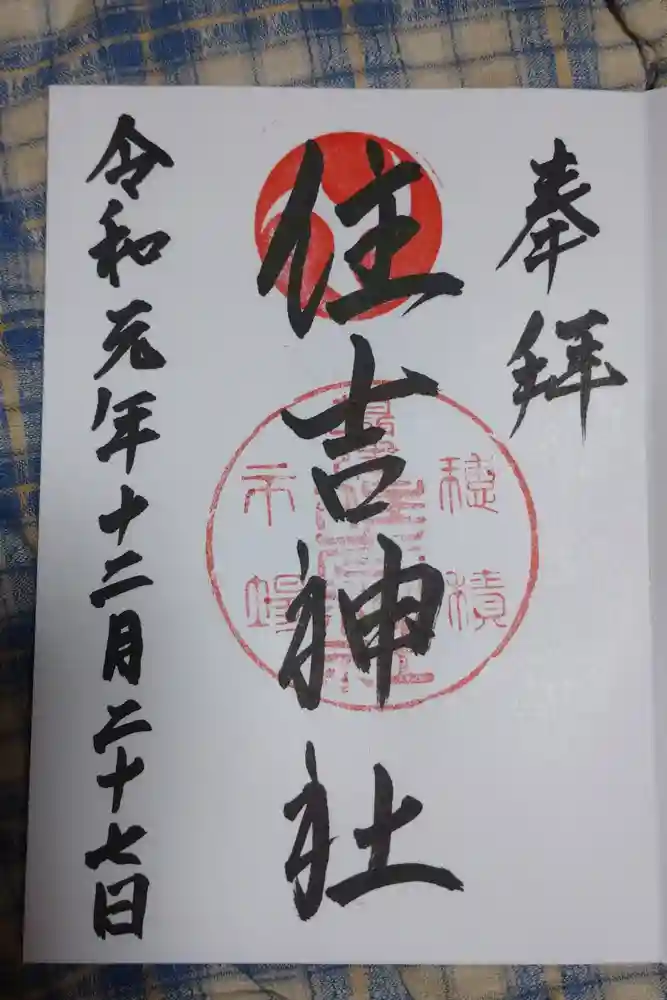 奉拝
住吉神社
令和元年十二月二十七日
穂積